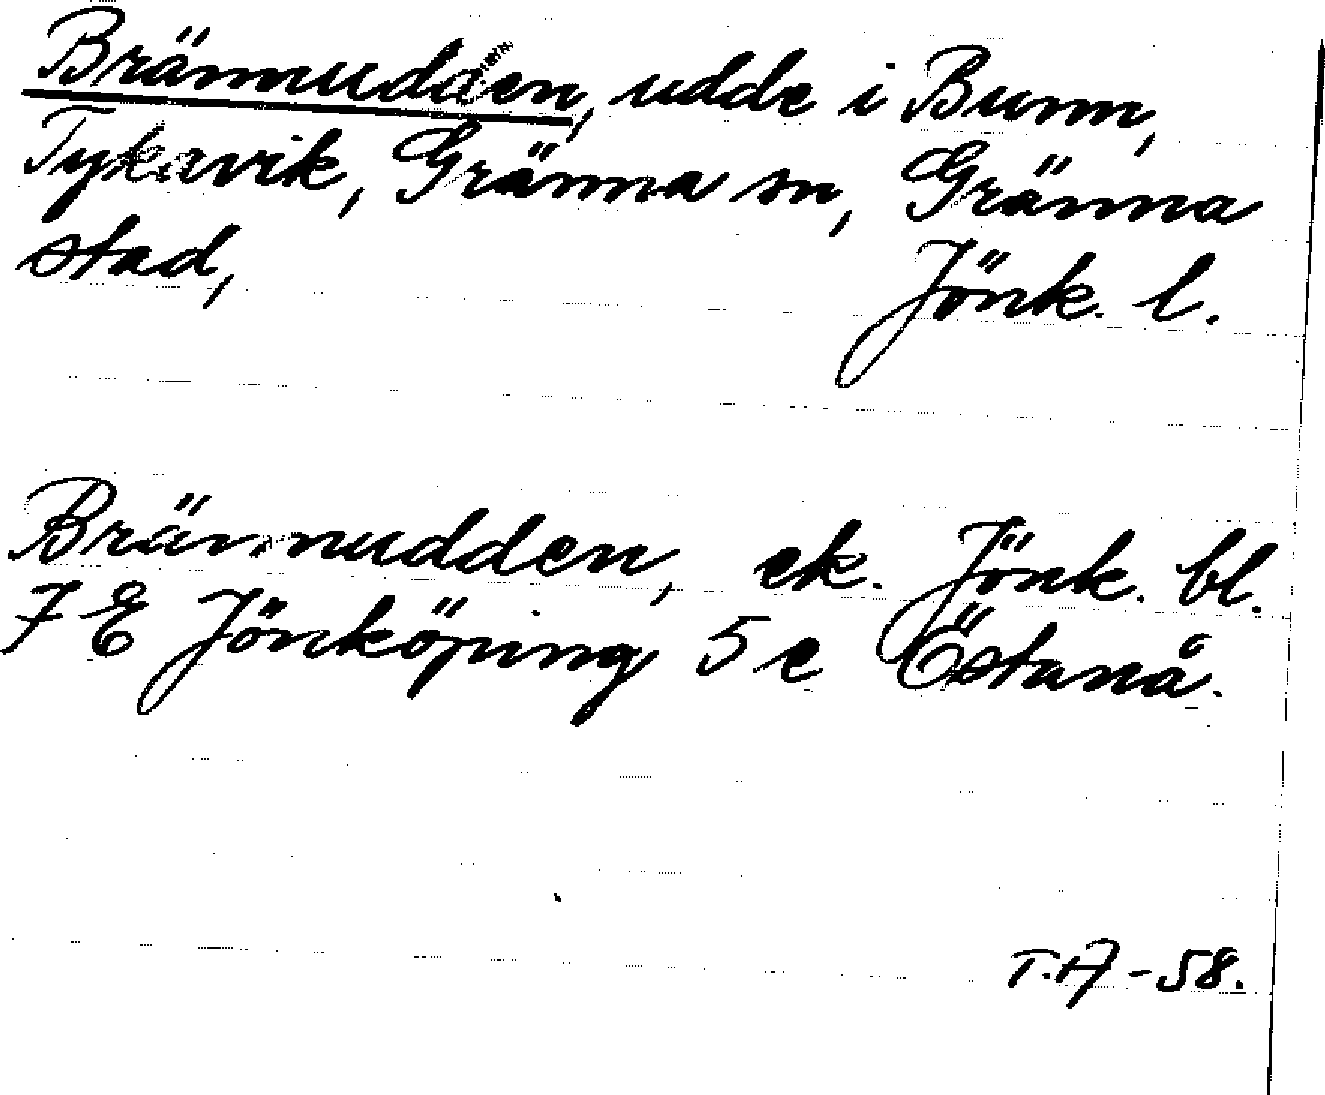 Brännudden, udde i Bunn,
Tykavik, Gränna sn, Gränna
stad, Jönk. l.
Brännudden, ek. Jönk. bl.
7 E Jönköping 5 e Östanå.
T.A -58.